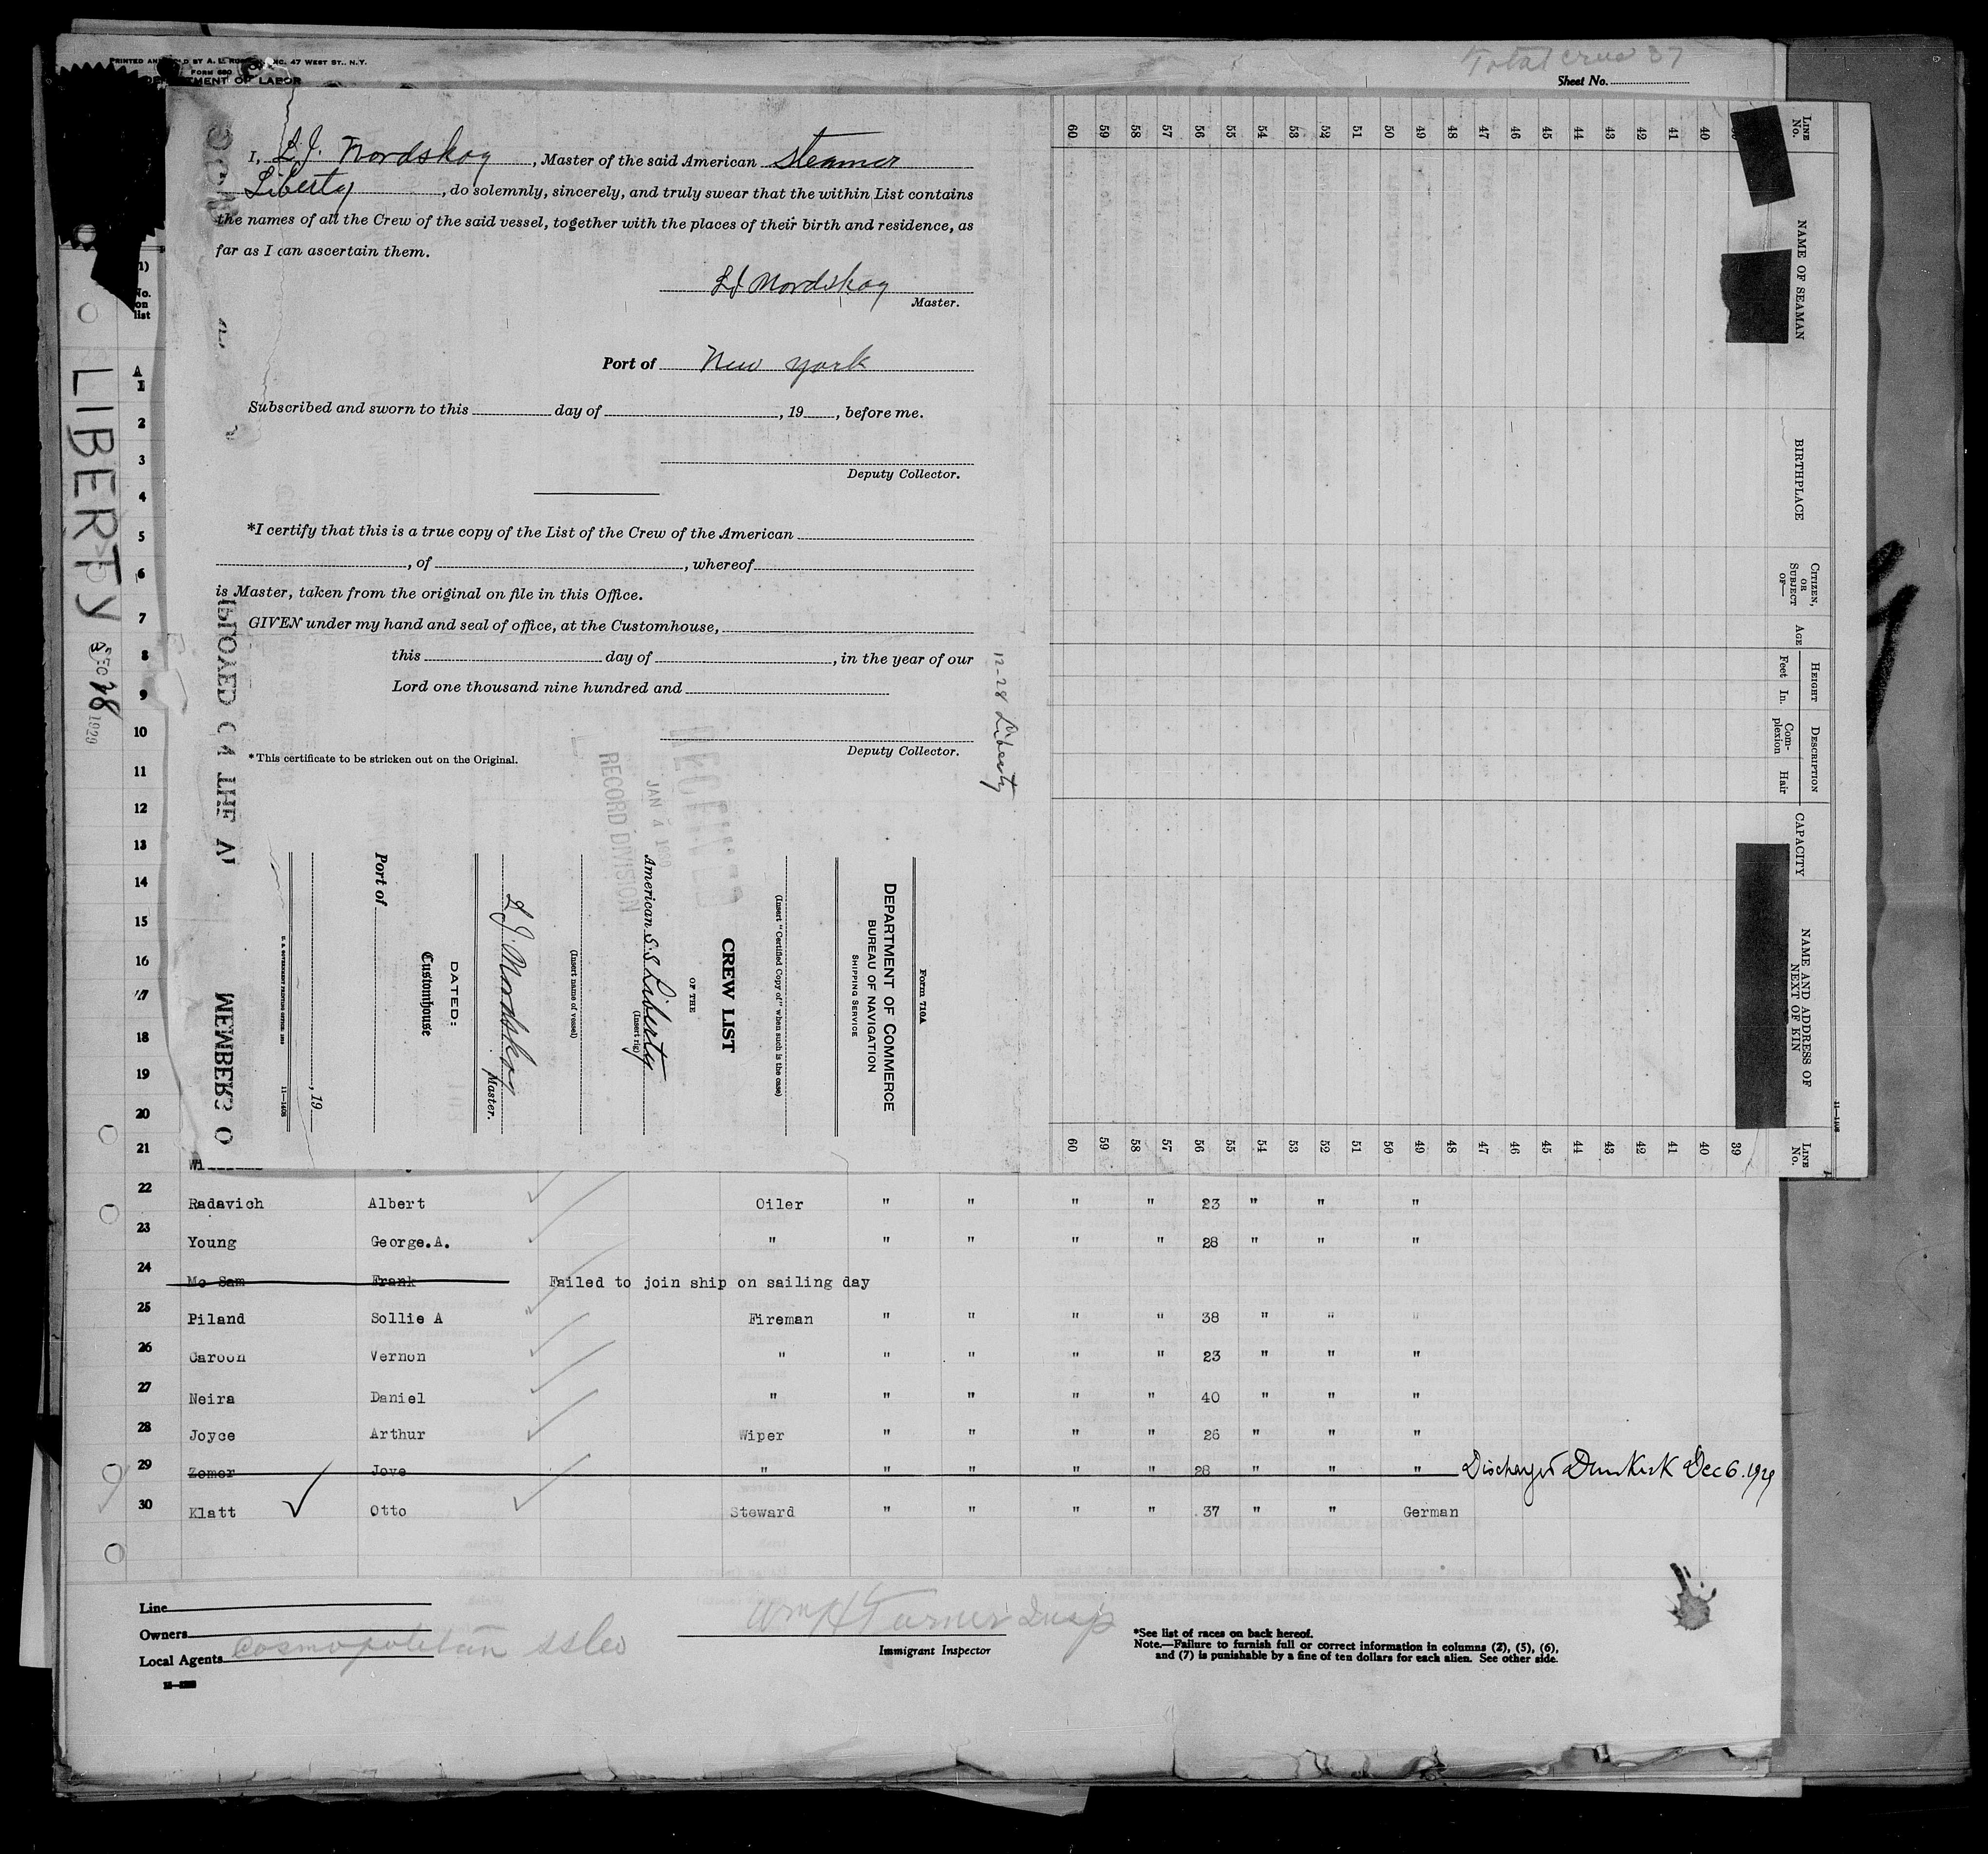 PRINTED AND
47 WEST ST., N.Y.
FORM 680
DEPARTMENT OF LABOR
Total crew 37
Sheet No.
I, L.J. Nordskog, Master of the said American Steamer
Liberty, do solemnly, sincerely, and truly swear that the within List contains
the names of all the Crew of the said vessel, together with the places of their birth and residence, as
far as I can ascertain them.
L J Nordskog
Master.
Port of New York
Subscribed and sworn to this day of , 19 , before me.
Deputy Collector.
*I certify that this is a true copy of the List of the Crew of the American
, of , whereof
is Master, taken from the original on file in this Office.
GIVEN under my hand and seal of office, at the Customhouse,
this day of , in the year of our
Lord one thousand nine hundred and
Deputy Collector.
*This certificate to be stricken out on the Original.
12-28 Liberty
Form 710A
DEPARTMENT OF COMMERCE
BUREAU OF NAVIGATION
SHIPPING SERVICE
(Insert "Certified Copy of" when such is the case)
CREW LIST
OF THE
American S.S. Liberty
(Insert rig)
(Insert name of vessel)
L.J. Nordskog
Master.
DATED:
Customhouse
Port of
, 19
11—1408
JAN 4
RECORD DIVISION
LIBERTY
DEC 28 1929
No.
on
list
1 2 3 4 5 6 7 8 9 10 11 12 13 14 15 16 17 18 19 20 21
LINE No. 40 41 42 43 44 45 46 47 48 49 50 51 52 53 54 55 56 57 58 59 60
NAME OF SEAMAN
BIRTHPLACE
CITIZEN, OR SUBJECT OF—
AGE
HEIGHT
Feet In.
DESCRIPTION
Complexion
Hair
CAPACITY
NAME AND ADDRESS OF NEXT OF KIN
LINE No. 39 40 41 42 43 44 45 46 47 48 49 50 51 52 53 54 55 56 57 58 59 60
11—1408
22 Radavich Albert Oiler " " " " 23 " " "
23 Young George.A. " " " " " 28 " " "
24 Mc Sam Frank Failed to join ship on sailing day
25 Piland Sollie A Fireman " " " " 38 " " "
26 Caroon Vernon " " " " " 23 " " "
27 Neira Daniel " " " " " 40 " " "
28 Joyce Arthur Wiper " " " " 26 " " "
29 Zomer Jove " " " " " 28 " " " Discharged Dunkirk Dec 6. 1929
30 Klatt Otto Steward " " " " 37 " " German
Line
Owners
Local Agents Cosmopolitan SS Co
Wm H Turner Insp
Immigrant Inspector
*See list of races on back hereof.
Note.—Failure to furnish full or correct information in columns (2), (5), (6),
and (7) is punishable by a fine of ten dollars for each alien. See other side.